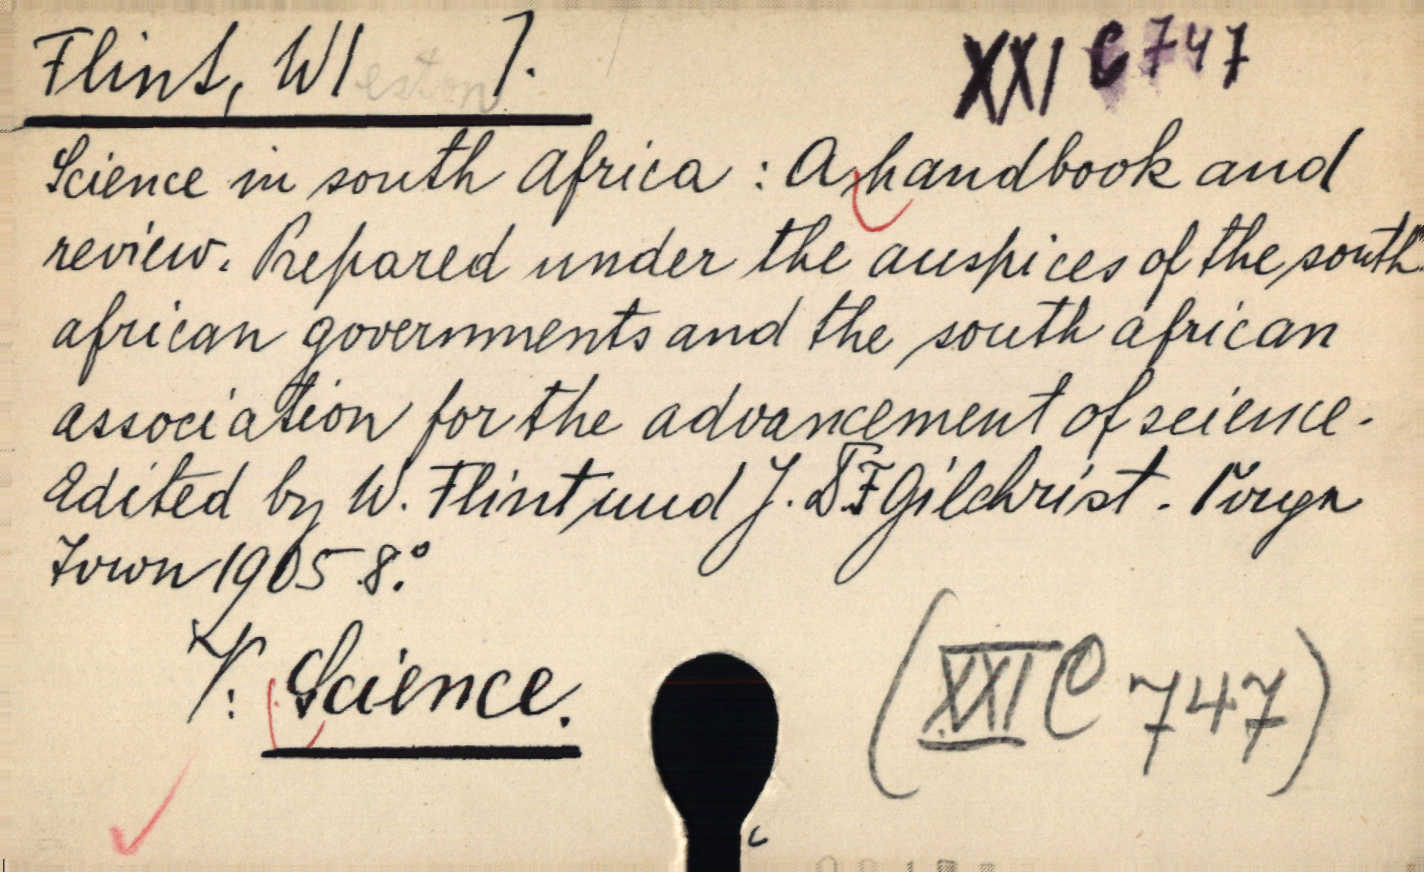 Flint, W[eston].
XXI C 747
Science in south africa : A handbook and
review. Prepared under the auspices of the south
african governments and the south african
association for the advancement of science.
Edited by W. Flint und J. D. F Gilchrist.
Town 1905 8.º
V: Science.
(XXI C 747)